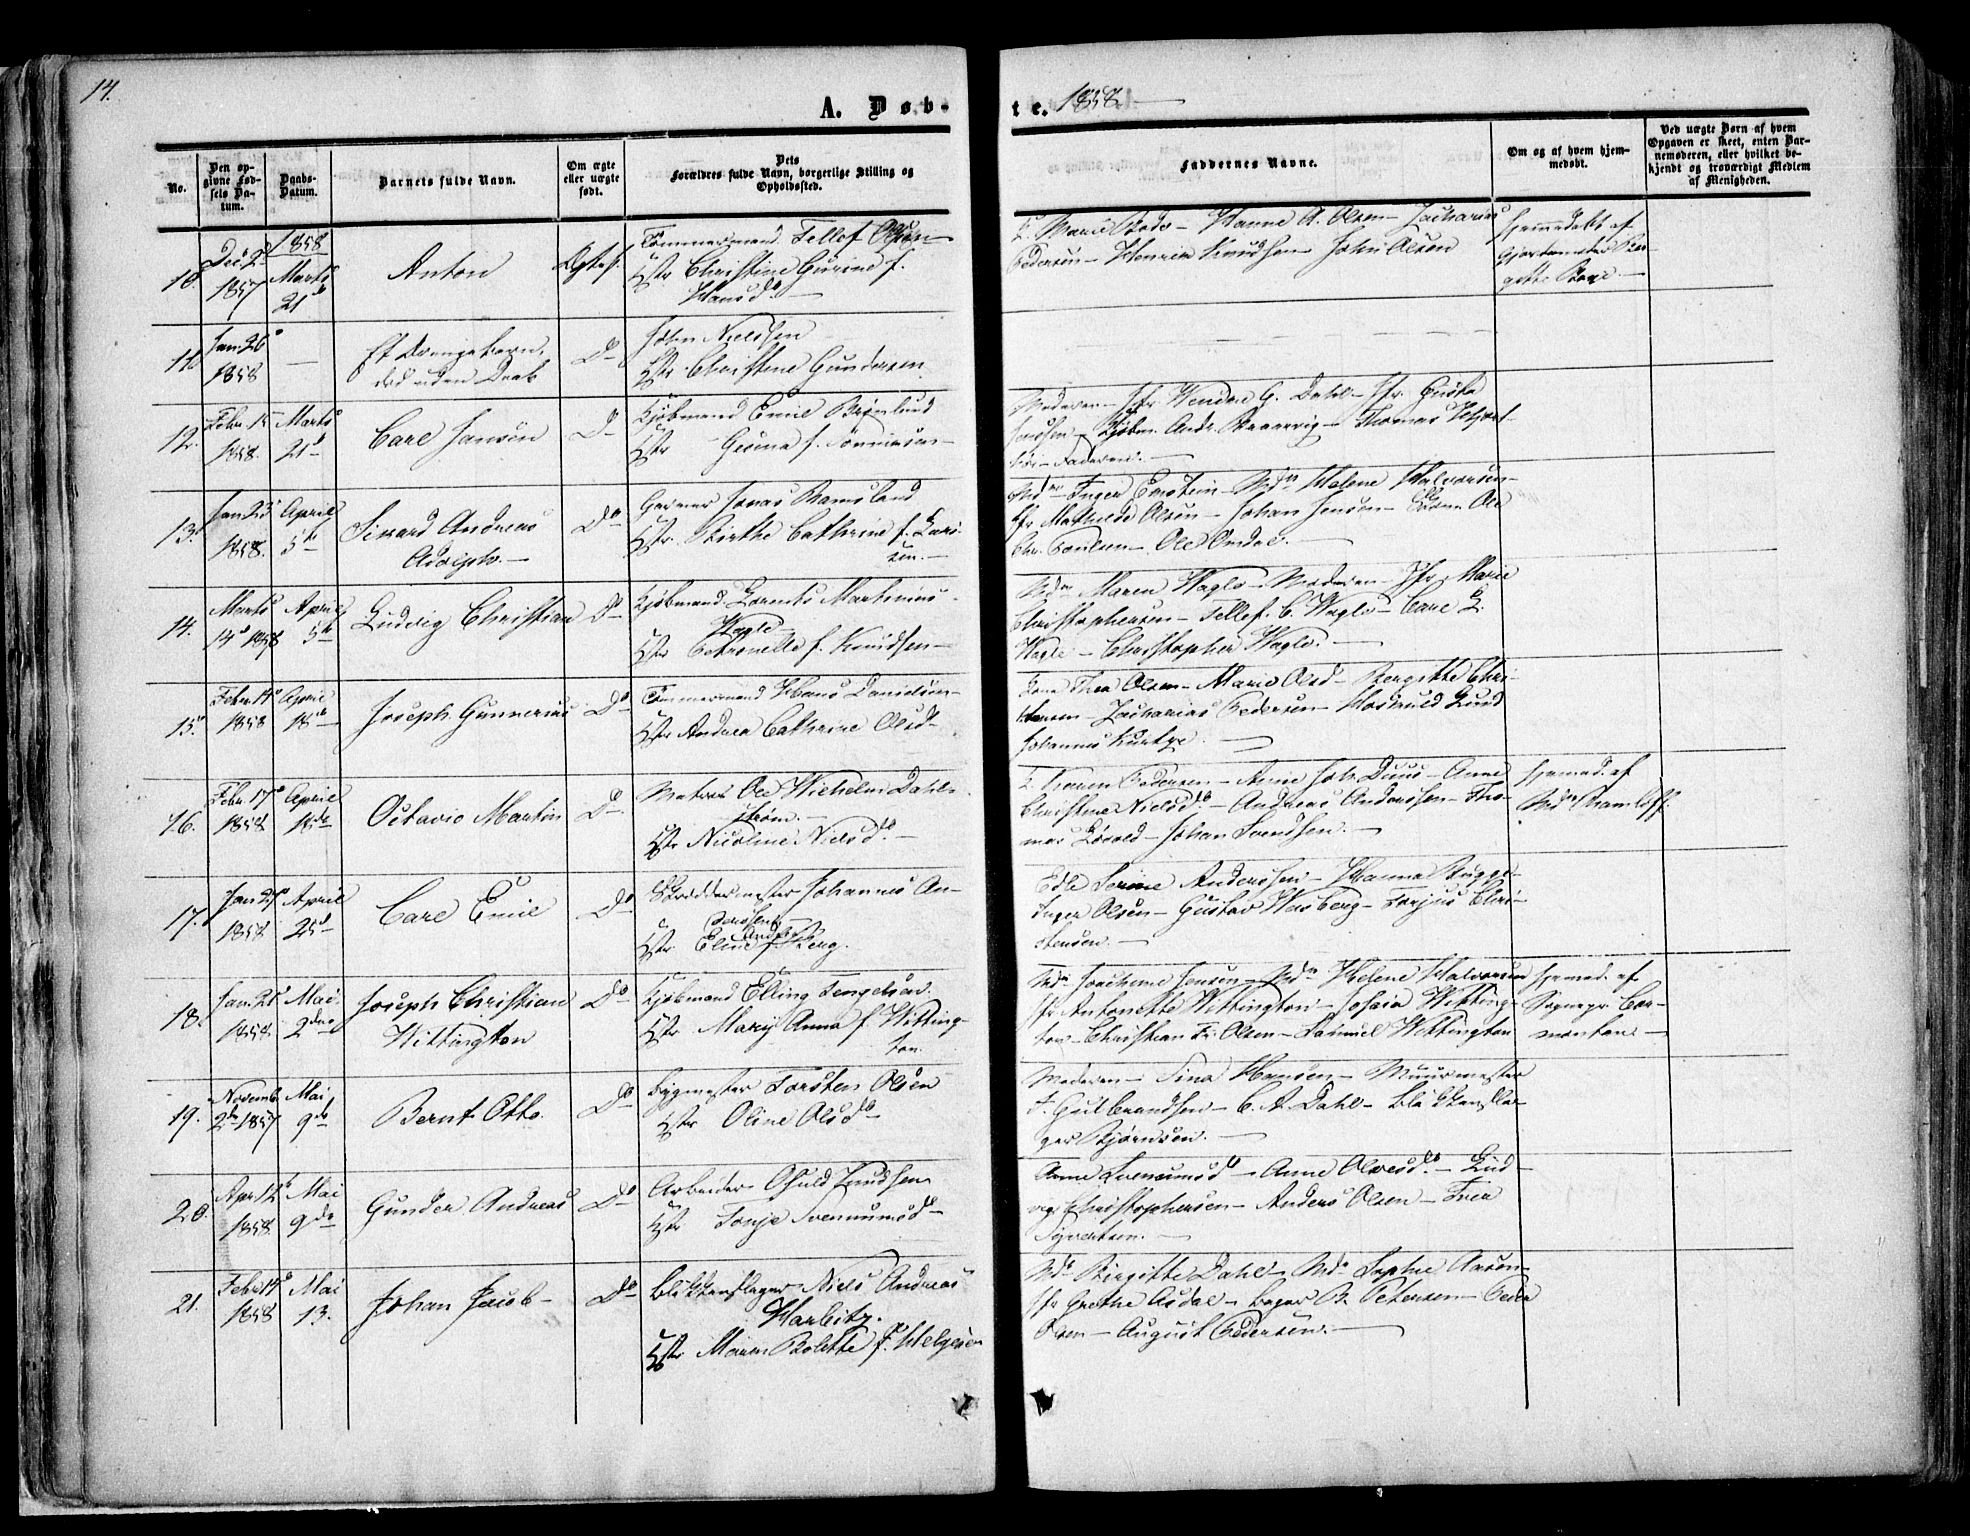 14.
A. Døb-
te. 1858
No.
Den op-
givne Fød-
sels Da-
tum.
Daabs-
Datum.
Barnets fulde Navn.
Om ægte
eller uægte
født.
Dets
Forældres fulde Navn, borgerlige Stilling og
Opholdssted.
Faddernes Navne.
Om og af hvem hjem-
medøbt.
Ved uægte Børn af hvem
Opgaven er skeet, enten Bar-
nemoderen, eller hvilket be-
kjendt og troværdigt Medlem
af Menigheden.
10.
Dec. 2
1857
1858
Marts
21
Anton
Ægtef.
Tømmermand Tellef Olsen
Hstr Christine Gurine f.
Hansd.
Marie Bodo - Hanne A. Olsen - Zacharias
Pedersen - Henrik Knudsen - John Olsen
Hjemmedøbt af
Gjordemoder Ber-
gitte Boye
11.
Jan. 26
1858
—
Et Drengebarn,
død uden Daab
Do
John Nielssen
Hstr Christine Gundersen
12.
Febr. 15
1858.
Marts
21
Carl Jansen
Do
Kjøbmand Emil Brønlund
Hstr Gesina f. Tønnesen
Moderen - Jfr Wendne G. Dahl - Jfr. Gusta
Knudsen - Kjøbm. Andr. Braarvig - Thomas Hjort-
- Faderen. -
13.
Jan. 23
1858.
April
5te
Sivard Andreas
Adolph. -
Do
Garver Jonas Ramsland
Hstr. Birthe Cathrine f. Lars-
sen. -
Mdm Inger Omstein - Mdm Helene Halvorsen -
Jfr Mathilde Olsen - Johan Jensen - Ole
Chr. Poulsen - Ole Omdal. -
14.
Marts
14 1858
April
5te
Ludvig Christian
Do
Kjøbmand Lorents Martinius
Wagle
Hstr Petronelle f. Knudsen -
Mdm Maren Wagle - Moderen - Jfr Marie
Christophersen - Tellef C. Wagle - Carl L.
Wagle - Christopher Wagle. -
15.
Febr. 14
1858
April
18de
Joseph Gunnerius
Do
Tømmermand Hans Danielsen -
Hstr Andrea Cathrine Olsd. -
Thea Olsen - Marie Olsd - Bergitte Chri-
stensen - Zacharias Pedersen - Hoskuld Lund
Johannes
16.
Febr. 17
1858
April
18de
Octavio Martin
Do
Matros Ole Wilhelm Dahl-
strøm. -
Hstr Nicoline Nielsd. -
Karen Pedersen - Anne Joh. Duus - Anne
Christine Nielsd. - Andreas Anderssen - Tho-
mas Løvold - Johan Svendsen. -
Hjemmed. af
Mdm Stamløff.
17.
Jan. 27
1858
April
25
Carl Emil
Do
Skreddermester Johannes An-
derssen
Hstr Eline Andr. f. Berg.
Edle Serine Anderssen - Hanna Bugge -
Inger Olsen - Gustav Wesberg - Torjus Chri-
stensen. -
18.
Jan. 21
1858
Mai
2den
Joseph Christian
Wittington
Do
Kjøbmand Elling Tengelsen.
Hstr Mary Anna f. Witting-
ton.
Mdm Joachime Jensen - Mdm Helene Halvorsen
Jfr Antonette Wittington - Josefa Witting-
ton - Christian Fr. Olsen - Samuel Wittington
Hjemmed. af
Sognepr. Cor-
montan. -
19.
Novemb.
2den 1857
Mai
9de
Bernt Otto.
Do
Bygmester Torsten Olsen
Hstr Oline Olsd. -
Moderen - Sina Hansen - Muurmester
F. Gulbrandsen - C. A. Dahl - Blikkensla-
ger Bjørnsen. -
20.
Apr. 12
1858.
Mai
9de
Gunder Andreas
Do
Arbeider Osuld Knudsen
Hstr Tonje Svenumsd. -
Anne Svenumsd. - Anne Olsesd. - Lud-
vig Christophersen - Anders Olsen - Iver
Syvertsen. -
21.
Febr. 14
1858
Mai
13.
Johan Jacob -
Do
Blikkenslager Niels Andreas
Harbitz.
Hstr Maren Bolette f. Helgesen
Mdm Birgitte Dahl - Mdm Sophie Aasen -
Jfr Grethe Asdal - Bager B. Petersen - Peder
Olsen - August Pedersen. -